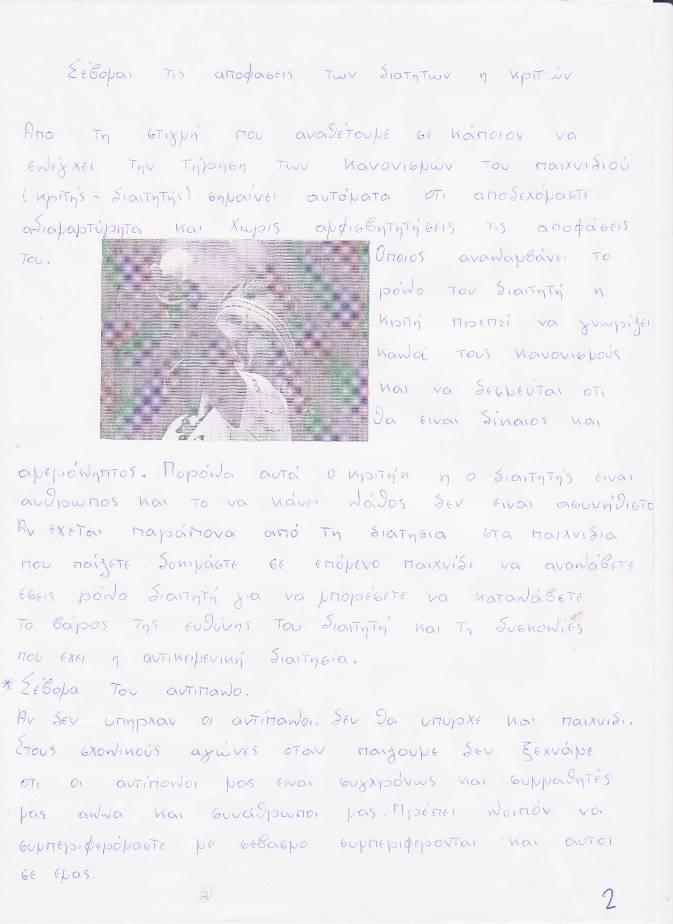 Σέβομαι τις αποφασεις των διατητων η κριτών
Απο τη στιγμή που αναθέτουμε σε κάποιον να
ελέγχει την τήρηση των κανονισμών του παιχνιδιού
(κριτής - διαιτητής) σημαίνει αυτόματα οτι αποδεχόμαστε
αδιαμαρτύρητα και χωρίς αμφισβητητήσεις τις αποφάσεις
του.
Όποιος αναλαμβάνει το
ρόλο του διαιτητή η
κριτή πρεπεί να γνωρίζει
καλά τους κανονισμούς
και να δεσμεύται οτι
θα ειναι δίκαιος και
αμερόληπτος. Πορόλα αυτά ο κριτήκ η ο διαιτητής ειναι
άνθρωπος και το να κάνει λάθος δεν ειναι ασυνήθιστο
Αν εχεται παράπονα από τη διατησία στα παιχνιδια
που παίζετε. δοκιμάστε σε επόμενο παιχνίδι να αναλάβετε
εσεις ρόλο διαιτητή για να μπορέσετε να καταλάβετε
το βάρος της ευθύνης του διαιτητή και τη δυσκολίες
που εχει η αντικειμενική διαιτησία.
* Σέβομα του αντιπαλο.
Αν δεν υπηρχαν οι αντίπαλοι. δεν θα υπύρχε και παιχνιδι.
Στους σχολικούς αγώνες οταν παιζουμε δεν ξεχνάμε
οτι οι αντίπαλοι μας ειναι συγχρόνως και συμμαθητές
μας αλλα και συνάθρωποι μας. Πρέπει λοιπόν να
συμπεριφερόμαστε με σεβασμο συμπεριφερονται και αυτοι
σε εμας.
2
2